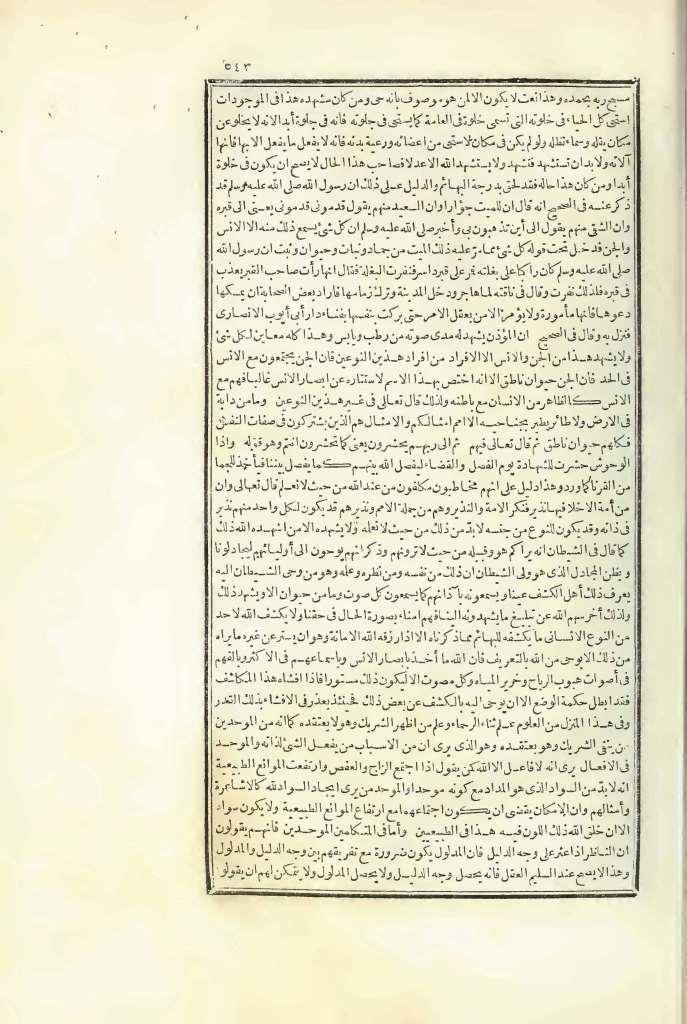 ٥٤٣
مسبح ربه بحمده وهذا نعت لا يكون الا لمن هو موصوف بانه حى ومن كان مشهده هذا فى الموجودات
استحى كل الحياء فى خلوته التى تسمى خلوة فى العامة كما يستحى فى جلوته فانه فى جلوة أبدا لانه لا يخلو عن
مكان يقله وسماء تظله ولو لم يكن فى مكان لاستحى من اعضائه ورعية بدنه فانه لا يفعل ما يفعل الا بها فانها
آلاته ولا بد ان تستشهد فتشهد ولا يستشهد الله الا عدلا فصاحب هذا الحال لا يصح ان يكون فى خلوة
أبدا ومن كان هذا حاله فقد لحق بدرجة البهائم والدليل على ذلك ان رسول الله صلى الله عليه وسلم قد
ذكر عنه فى الصحيح انه قال ان للميت جؤارا وان السعيد منهم يقول قدمونى قدمونى يعنى الى قبره
وان الشقى منهم يقول الى أين تذهبون بى وأخبر صلى الله عليه وسلم ان كل شئ يسمع ذلك منه الا الانس
والجن فدخل تحت قوله كل شئ مما يمر عليه ذلك الميت من جماد ونبات وحيوان وثبت ان رسول الله
صلى الله عليه وسلم كان راكبا على بغلته فمر على قبر دائر فنفرت البغلة فقال انها رأت صاحب القبر يعذب
فى قبره فلذلك نفرت وقال فى ناقته لما هاجر ودخل المدينة وترك زمامها فاراد بعض الصحابة ان يمسكها
دعوها فانها مأمورة ولا يؤمر الا من يعقل الامر حتى بركت بنفسها بفناء دار أبى أيوب الانصارى
فنزل به وقال فى الصحيح ان المؤذن يشهد له مدى صوته من رطب ويابس وهذا كله معاين لكل شئ
ولا يشهد هذا من الجن والانس الا الافراد من افراد هذين النوعين فان الجن يجتمعون مع الانس
فى الحد فان الجن حيوان ناطق الا انه اختص بهذا الاسم لاستتاره عن ابصار الانس غالبا فهم مع
الانس كالظاهر من الانسان مع باطنه ولذلك قال تعالى فى غير هذين النوعين وما من دابة
فى الارض ولا طائر يطير بجناحيه الا امم امثالكم والامثال هم الذين يشتركون فى صفات النفس
فكلهم حيوان ناطق ثم قال تعالى فيهم ثم الى ربهم يحشرون يعنى كما تحشرون انتم وهو قوله واذا
الوحوش حشرت للشهادة يوم الفصل والقضاء ليفصل الله بينهم كما يفصل بيننا فيأخذ للجما
من القرنا كما ورد وهذا دليل على انهم مخاطبون مكلفون من عند الله من حيث لا نعلم قال تعالى وان
من أمة الا خلا فيها نذير فنكر الامة والنذير وهم من جملة الامم ونذيرهم قد يكون لكل واحد منهم نذير
فى ذاته وقد يكون للنوع من جنسه لا بد من ذلك من حيث لا نعلمه ولا يشهده الا من اشهده الله ذلك
كما قال فى الشيطان انه يراكم هو وقبيله من حيث لا ترونهم وذكر انهم يوحون الى أوليائهم ليجادلونا
ويظن المجادل الذى هو ولى الشيطان ان ذلك من نفسه ومن نظره وعلمه وهو من وحى الشيطان اليه
يعرف ذلك أهل الكشف عينا ويسمعونه بآذانهم كما يسمعون كل صوت وما من حيوان الا ويشهد ذلك
ولذلك أخرسهم الله عن تبليغ ما يشهدونه الينا فهم امناء بصورة الحال فى حقنا ولا يكشف الله لاحد
من النوع الانسانى ما يكشفه للبهائم مما ذكرناه الا اذا رزقه الله الامانة وهو ان يستر عن غيره ما يراه
من ذلك الا بوحى من الله بالتعريف فان الله ما أخذ بابصار الانس وباسماعهم فى الاكثر وبالفهم
فى أصوات هبوب الرياح وخرير المياه وكل مصوت الا ليكون ذلك مستورا فاذا افشاه هذا المكاشف
فقد ابطل حكمة الوضع الا ان يوحى اليه بالكشف عن بعض ذلك فحينئذ يعذر فى الافشاء بذلك القدر
وفى هذا المنزل من العلوم علم ثناء الرحماء وعلم من اظهر الشريك وهو لا يعتقده كما انه من الموحدين
من ينفى الشريك وهو يعتقده وهو الذى يرى ان من الاسباب من يفعل الشئ لذاته والموحد
فى الافعال يرى انه لا فاعل الا الله كمن يقول اذا اجتمع الزاج والعفص وارتفعت الموانع الطبيعية
انه لا بد من السواد الذى هو المداد مع كونه موحدا والموحد من يرى ايجاد السواد لله كالاشاعرة
وأمثالهم وان الامكان يقضى ان يكون اجتماعهما مع ارتفاع الموانع الطبيعية ولا يكون سواد
الا ان خلق الله ذلك اللون فيه هذا فى الطبيعيين وأما فى المتكلمين الموحدين فانهم يقولون
ان الناظر اذا عثر على وجه الدليل فان المدلول يكون ضرورة مع تفريقهم بين وجه الدليل والمدلول
وهذا لا يصح عند السليم العقل فانه يحصل وجه الدليل ولا يحصل المدلول ولا يتمكن لهم ان يقولوا